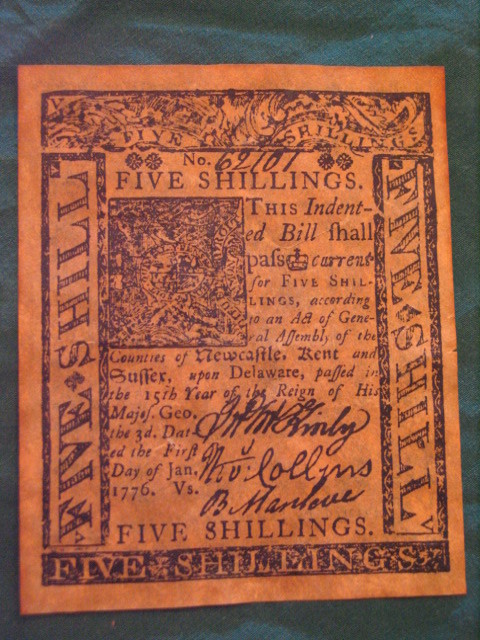 FIVE SHILLINGS
No. 62101
FIVE SHILLINGS.
THIS Indent-
ed Bill ſhall
paſs current
for FIVE SHIL-
LINGS, according
to an Act of Gene-
ral Aſſembly of the
Counties of Newcaſtle, Kent and
Suſſex, upon Delaware, paſſed in
the 15th Year of the Reign of His
Majeſ. Geo.
the 3d. Dat-
ed the Firſt
Day of Jan.
1776. Vs.
Jn McKinly
Collins
B Manlove
FIVE SHILLINGS.
FIVE SHILLINGS
FIVE SHILL
FIVE SHILL